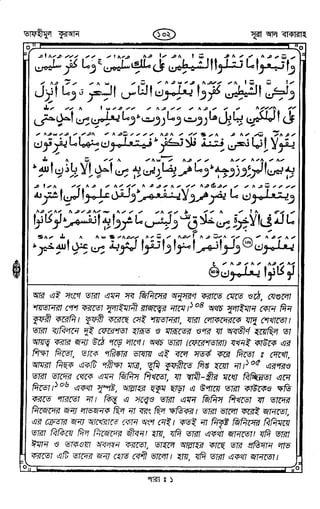 তাফহীমুল কুরআন
১০২
সূরা আল বাকারাহ
وَاتَّبَعُوا مَا تَتْلُوا الشَّيٰطِيْنُ عَلٰى مُلْكِ سُلَيْمٰنَ ۚ وَمَا كَفَرَ سُلَيْمٰنُ
وَلٰكِنَّ الشَّيٰطِيْنَ كَفَرُوْا يُعَلِّمُوْنَ النَّاسَ السِّحْرَ ۗ وَمَا اُنْزِلَ
عَلَى الْمَلَكَيْنِ بِبَابِلَ هَارُوْتَ وَمَارُوْتَ ۗ وَمَا يُعَلِّمٰنِ مِنْ اَحَدٍ حَتّٰى
يَقُوْلَا اِنَّمَا نَحْنُ فِتْنَةٌ فَلَا تَكْفُرْ ۗ فَيَتَعَلَّمُوْنَ مِنْهُمَا مَا يُفَرِّقُوْنَ
بِهٖ بَيْنَ الْمَرْءِ وَزَوْجِهٖ ۗ وَمَا هُمْ بِضَارِّيْنَ بِهٖ مِنْ اَحَدٍ اِلَّا بِاِذْنِ اللّٰهِ ۗ
وَيَتَعَلَّمُوْنَ مَا يَضُرُّهُمْ وَلَا يَنْفَعُهُمْ ۗ وَلَقَدْ عَلِمُوْا لَمَنِ اشْتَرٰىهُ
مَا لَهٗ فِى الْاٰخِرَةِ مِنْ خَلَاقٍ ۗ وَلَبِئْسَ مَا شَرَوْا بِهٖ اَنْفُسَهُمْ ۗ لَوْ كَانُوْا
يَعْلَمُوْنَ ۝ وَلَوْ اَنَّهُمْ اٰمَنُوْا وَاتَّقَوْا لَمَثُوْبَةٌ مِّنْ عِنْدِ اللّٰهِ خَيْرٌ ۗ
لَوْ كَانُوْا يَعْلَمُوْنَ ۝
আর এই সংগে তারা এমন সব জিনিসের অনুসরণ করাতে মেতে ওঠে, যেগুলো
শয়তানরা পেশ করতো সুলাইমানী রাজত্বের নামে।১০৪ অথচ সুলাইমান কোন দিন
কুফরী করেনি। কুফরী করেছে সেই শয়তানরা, যারা লোকদেরকে যাদু শেখাতো।
তারা ব্যবিলনে দুই ফেরেশতা হারূত ও মারূতের ওপর যা অবতীর্ণ হয়েছিল তা
আয়ত্ব করার জন্য উঠে পড়ে লাগে। অথচ তারা (ফেরেশতারা) যখনই কাউকে এর
শিক্ষা দিতো, তাকে পরিষ্কার ভাষায় এই বলে সতর্ক করে দিতো ঃ দেখো,
আমরা নিছক একটি পরীক্ষা মাত্র, তুমি কুফরীতে লিপ্ত হয়ো না।১০৫ এরপরও
তারা তাদের থেকে এমন জিনিস শিখতো, যা স্বামী-স্ত্রীর মধ্যে বিচ্ছিন্নতা এনে
দিতো।১০৬ একথা সুস্পষ্ট, আল্লাহর হুকুম ছাড়া এ উপায়ে তারা কাউকেও ক্ষতি
করতে পারতো না। কিন্তু এ সত্ত্বেও তারা এমন জিনিস শিখতো যা তাদের
নিজেদের জন্য লাভজনক ছিল না বরং ছিল ক্ষতিকর। তারা ভালো করেই জানতো,
এর ক্রেতার জন্য আখেরাতে কোন অংশ নেই। কতই না নিকৃষ্ট জিনিসের বিনিময়ে
তারা বিকিয়ে দিল নিজেদের জীবন! হায়, যদি তারা একথা জানতো! যদি তারা
ঈমান ও তাকওয়া অবলম্বন করতো, তাহলে আল্লাহর কাছে তার প্রতিদান লাভ
করতো এটি তাদের জন্য হোত বেশী ভালো। হায়, যদি তারা একথা জানতো।
পারা ঃ ১